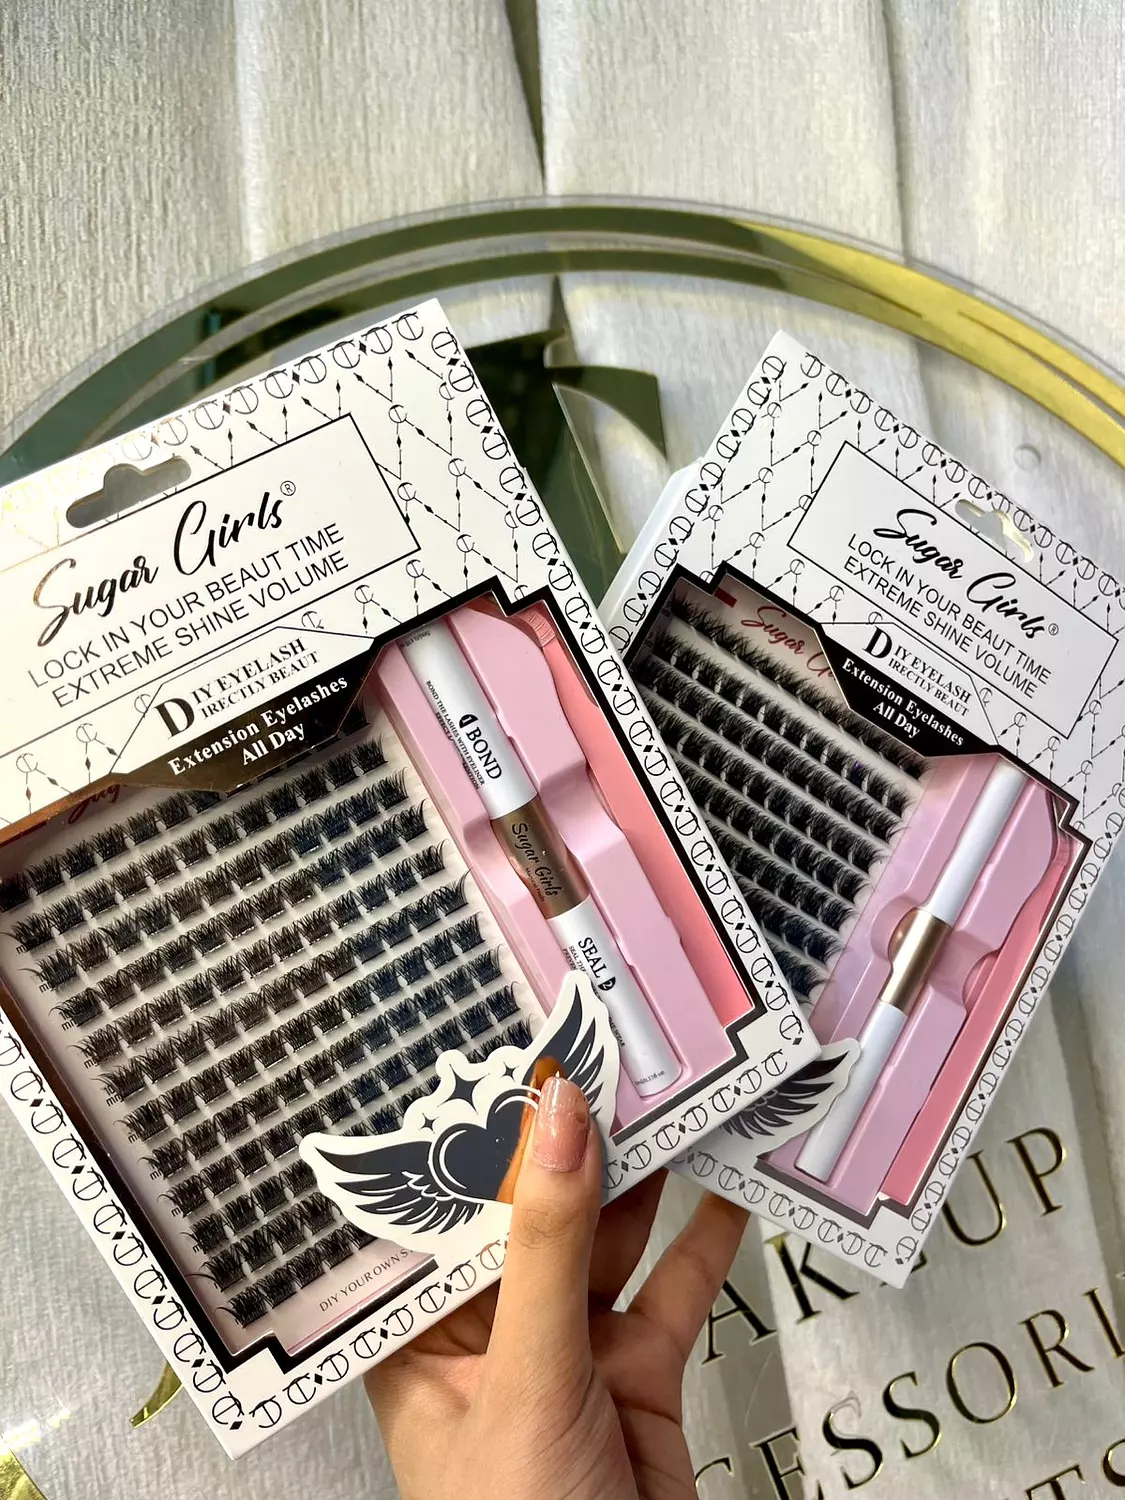 Sugar Girls®
LOCK IN YOUR BEAUT TIME
EXTREME SHINE VOLUME
DIY EYELASH
DIRECTLY BEAUT
Extension Eyelashes
All Day
BOND
BOND THE LASHES WITH EYELINER
Sugar Girls
SEAL
DIY YOUR OWN
Sugar Girls®
LOCK IN YOUR BEAUT TIME
EXTREME SHINE VOLUME
DIY EYELASH
DIRECTLY BEAUT
Extension Eyelashes
All Day
Sugar